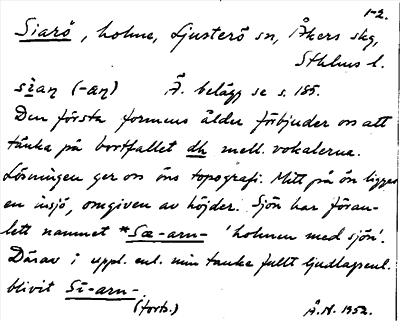 1-2.
Siarö, holme, Ljusterö sn, Åkers skg,
Sthlms l.
sìaŋ (-aŋ) Ä. belägg se s. 185.
Den första formens ålder förbjuder oss att
tänka på bortfallet dh mell. vokalerna.
Lösningen ger oss öns topografi. Mitt på ön ligger
en insjö, omgiven av höjder. Sjön har föran-
lett namnet *Sæ-arn- 'holmen med sjön'.
Därav i uppl. enl. min tanke fullt ljudlagsenl.
blivit Sī-arn-.
(forts.) Å.N. 1952.